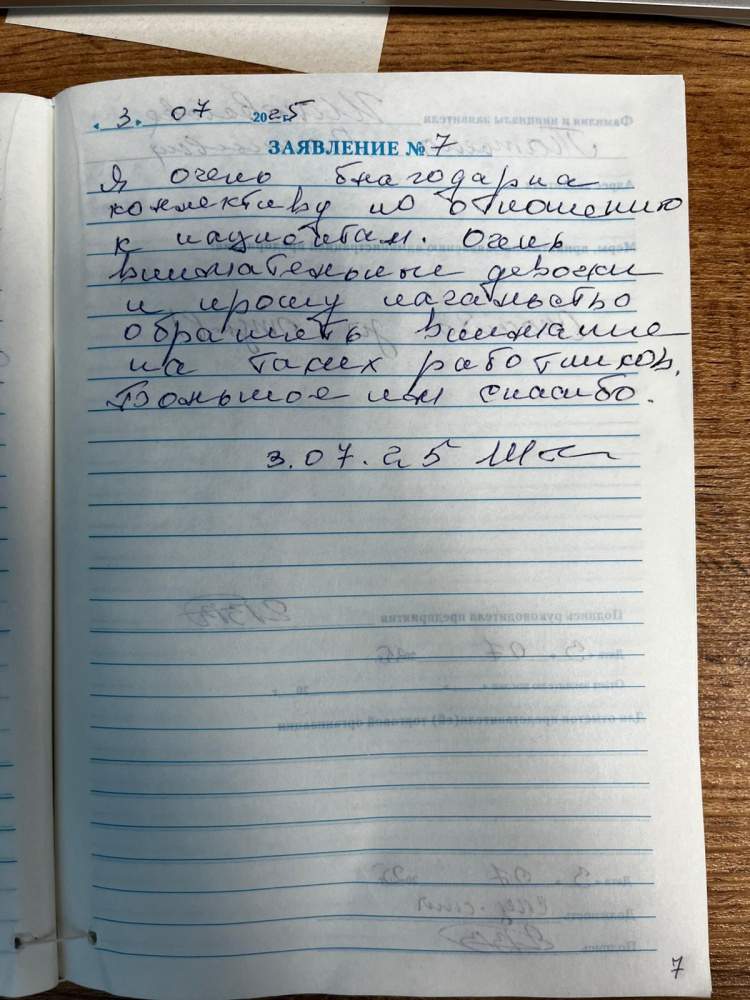 « 3 » 07 2025 г.
ЗАЯВЛЕНИЕ № 7
Я очень благодарна
коллективу по отношению
к пациентам. Очень
внимательные девочки
и прошу начальство
обращать внимание
на таких работников.
Большое им спасибо.
3.07.25
7